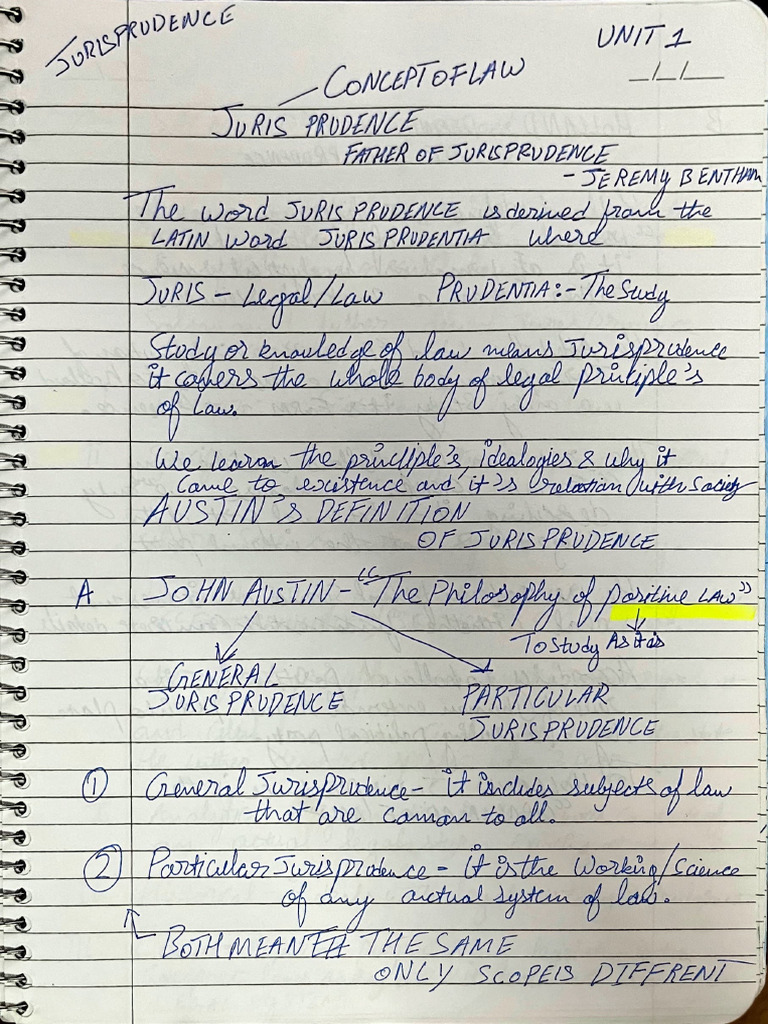 JURISPRUDENCE
UNIT 1
_/_/_
CONCEPT OF LAW
JURIS PRUDENCE
FATHER OF JURISPRUDENCE
- JEREMY BENTHAM
The word JURIS PRUDENCE is derived from the
LATIN word JURISPRUDENTIA where
JURIS - Legal/Law PRUDENTIA:- The Study
Study or knowledge of law means Jurisprudence
it covers the whole body of legal principle's
of law.
We learn the principle's, idealogies & why it
came to existence and it's relation with society
AUSTIN'S DEFINITION
OF JURISPRUDENCE
A JOHN AUSTIN - "The Philosophy of positive LAW"
To Study As it is
GENERAL
JURISPRUDENCE
PARTICULAR
JURISPRUDENCE
① General Jurisprudence - it includes subjects of law
that are common to all.
② Particular Jurisprudence - it is the working/science
of any actual system of law.
BOTH MEAN THE SAME
ONLY SCOPE IS DIFFRENT